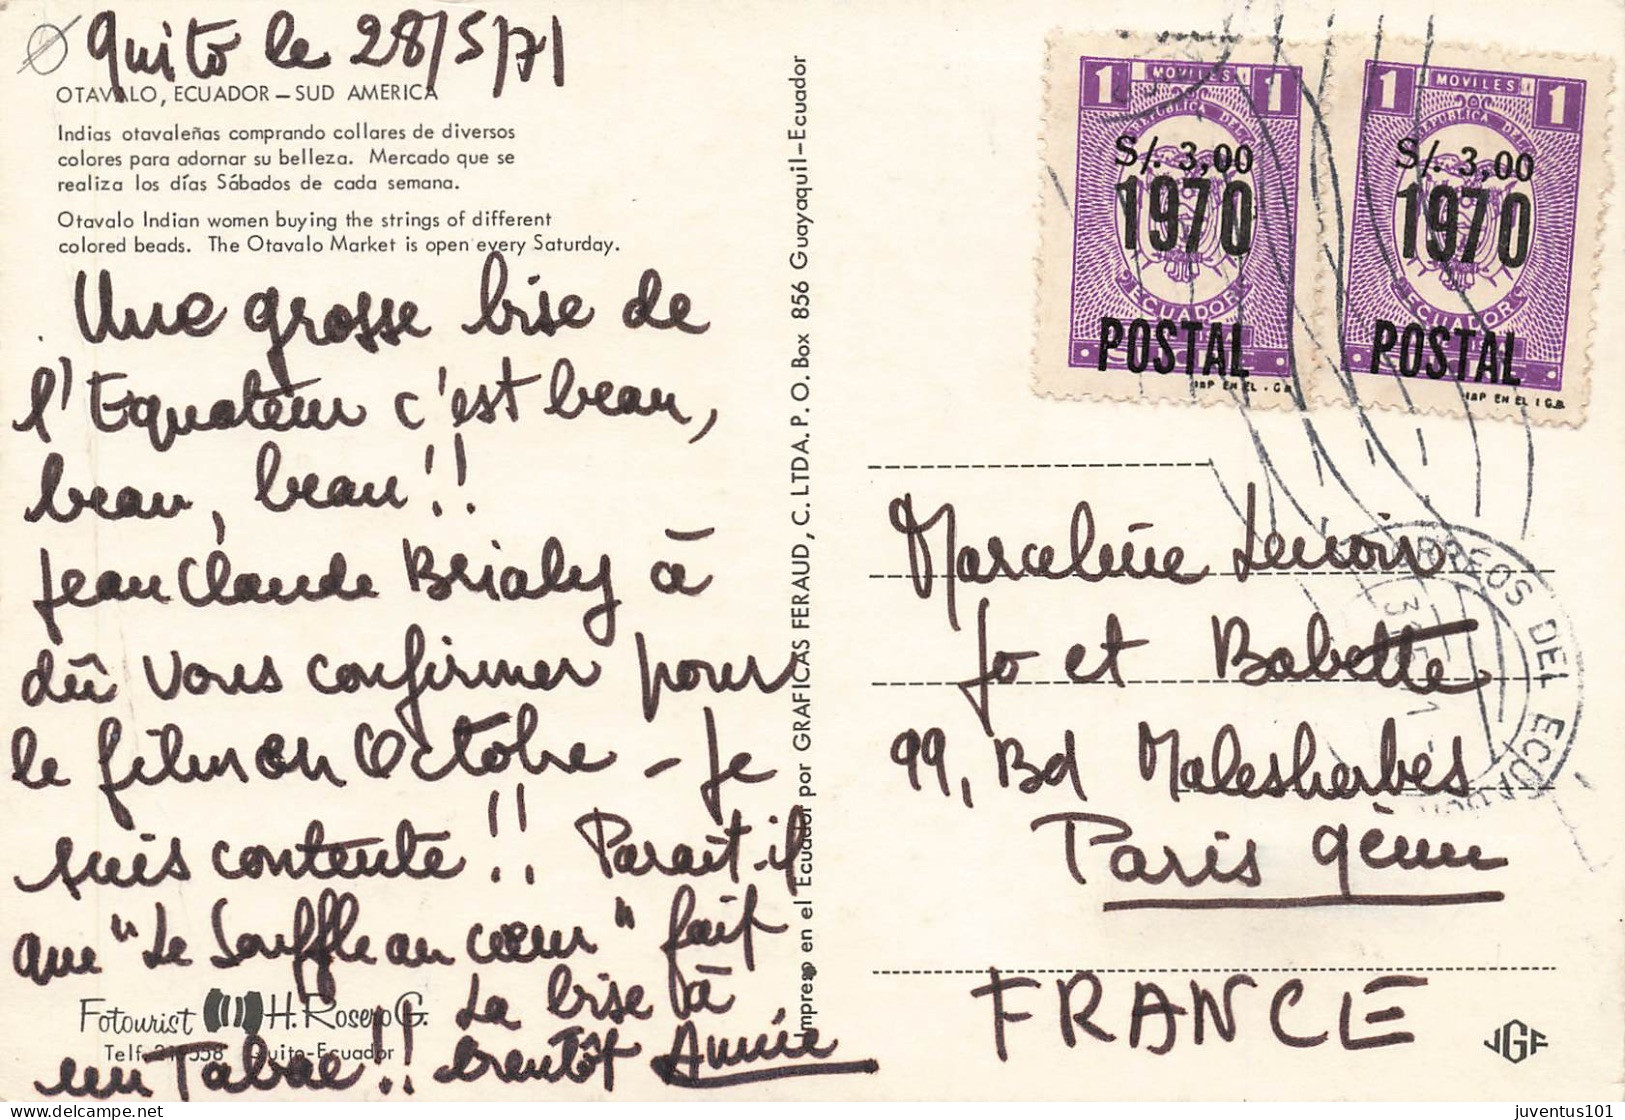 Quito le 28/5/71
OTAVALO, ECUADOR – SUD AMERICA
Indias otavaleñas comprando collares de diversos
colores para adornar su belleza. Mercado que se
realiza los días Sábados de cada semana.
Otavalo Indian women buying the strings of different
colored beads. The Otavalo Market is open every Saturday.
Une grosse bise de
l'Equateur c'est beau,
beau, beau!!
Jean Claude Brialy à
dû vous confirmer pour
le film en Octobre – Je
suis contente!! Parait-il
que "Le Souffle au coeur" fait
un Tabac!! La bise à
bientôt Annie
Fotourist H. Rosero G.
Telf. 218558 Quito-Ecuador
Impreso en el Ecuador por GRAFICAS FERAUD, C. LTDA. P. O. Box 856 Guayaquil-Ecuador
1 MOVILES 1
REPUBLICA DEL
S/. 3,00
1970
ECUADOR
POSTAL
IMP EN EL I.G.M.
1 MOVILES 1
REPUBLICA DEL
S/. 3,00
1970
ECUADOR
POSTAL
IMP EN EL I.G.M.
CORREOS DEL ECUADOR
Marceline Lenoir
Jo et Babette
99, Bd Malesherbes
Paris 9ème
FRANCE
JGF
juventus101